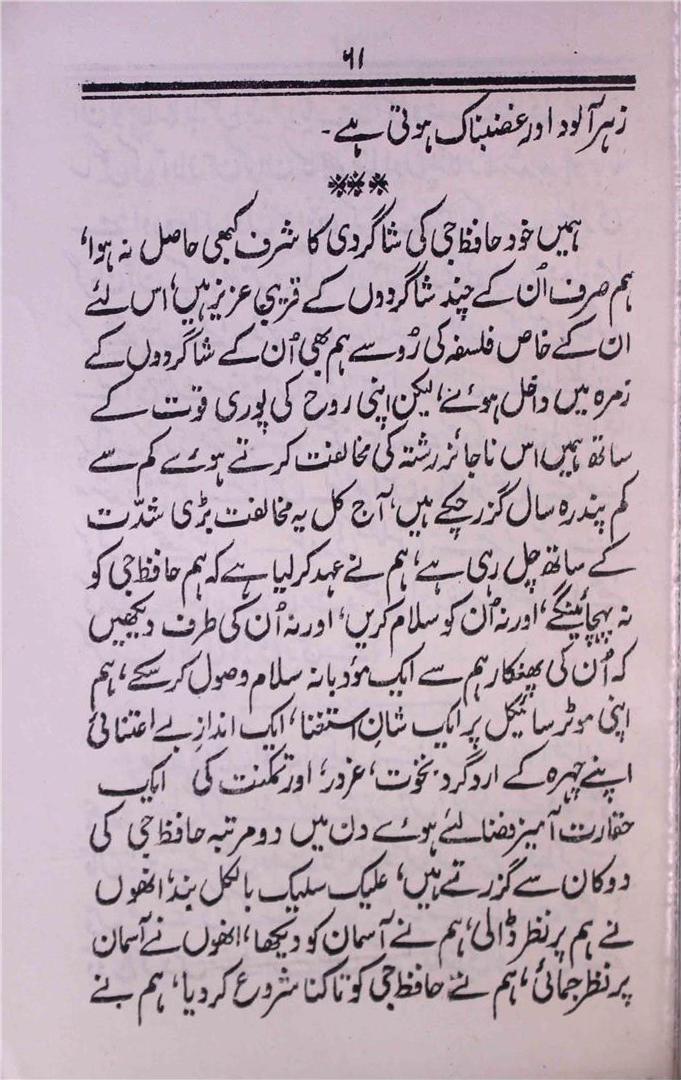 ۶۱
زہر آلود اور غضبناک ہوتی ہے۔
***
ہمیں خود حافظ جی کی شاگردی کا شرف کبھی حاصل نہ ہوا،
ہم صرف اُن کے چند شاگردوں کے قریبی عزیز ہیں، اس لئے
ان کے خاص فلسفہ کی رُو سے ہم بھی اُن کے شاگردوں کے
زمرہ میں داخل ہوئے، لیکن اپنی روح کی پوری قوت کے
ساتھ ہمیں اس ناجائز رشتہ کی مخالفت کرتے ہوے کم سے
کم پندرہ سال گزر چکے ہیں، آج کل یہ مخالفت بڑی شدّت
کے ساتھ چل رہی ہے، ہم نے عہد کر لیا ہے کہ ہم حافظ جی کو
نہ پہچانینگے، اور نہ اُن کو سلام کریں، اور نہ اُن کی طرف دیکھیں
کہ اُن کی پھنکار ہم سے ایک مؤدبانہ سلام وصول کر سکے، ہم
اپنی موٹر سائیکل پر ایک شانِ استغنا، ایک اندازِ بے اعتنائی
اپنے چہرہ کے ارد گرد نخوت، غرور، اور تمکنت کی ایک
حقارت آمیز فضا لئے ہوے دن میں دو مرتبہ حافظ جی کی
دوکان سے گزرتے ہیں، علیک سلیک بالکل بند، انھوں
نے ہم پر نظر ڈالی، ہم نے آسمان کو دیکھا، انھوں نے آسمان
پر نظر جمائی، ہم نے حافظ جی کو تاکنا شروع کر دیا، ہم نے